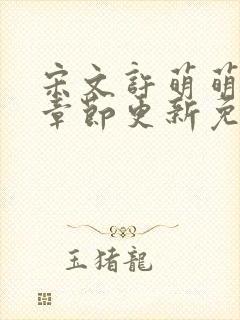 宋文許萌萌
章節更新免
玉猪龍